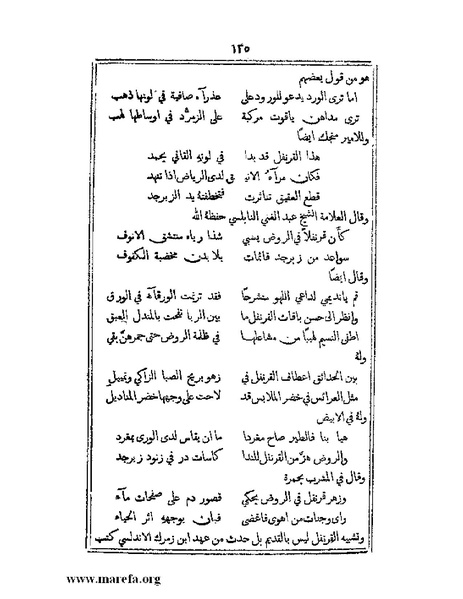 ١٣٥
هو من قول بعضهم
اما ترى الورد يدعو للورود على عذرآء صافية في لونها ذهب
ترى مداهن ياقوت مركبة على الزمرّد في اوساطها لهب
وللامير منجك ايضًا
هذا القرنفل قد بدا في لونه القاني يحمد
فكان مرآه الانيق لدى الرياض اذا تنهد
قطع العقيق تناثرت فتخطفته يد الزبرجد
وقال العلامة الشيخ عبد الغني النابلسي حفظهُ الله
كأن قرنفلاً في الروض يسبي شذا رياه منتشق الانوف
سواعد من زبرجد قائمات بلا بدن مخضبة الكفوف
وقال ايضًا
قم يانديمي لداعي اللهو منشرحًا فقد ترنمت الورقآء في الورق
وانظر الى حسن باقات القرنفل ما بين الربا نفحت بالمندل العبق
اطفى النسيم لهيبًا من مشاعلها في ظلمة الروض حتى جمرهنّ بقي
ولهُ
بين الحدائق اعطاف القرنفل في زهو بريح الصبا الزاكي وتمييل
مثل العرائس في خضر الملابس قد لاحت على وجهها حمر المناديل
ولهُ في الابيض
هيا بنا فالطير صاح مغردا ما ان يقاس لدى الورى بمغرد
والروض هزّ من القرنفل للندا كاسات در في زنود زبرجد
وقال في المشرب بحمرة
وزهر قرنفل في الروض يحكي قصور دم على صفحات مآء
راى وجنات من اهوى فاغضى فبان بوجههِ اثر الحياء
وتشبيه القرنفل ليس بالقديم بل حدث من عهد ابن زمرك الاندلسي كتب
www.marefa.org